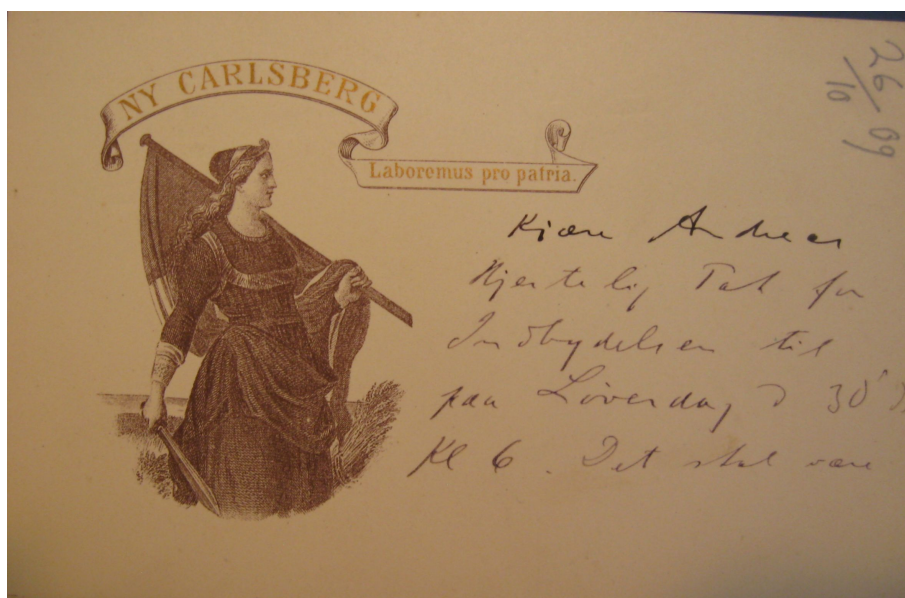 NY CARLSBERG
Laboremus pro patria.
26/10 09
Kjære Andreas
Hjertelig Tak for
Indbydelsen til
paa Löverdag d 30'
Kl 6. Det skal være